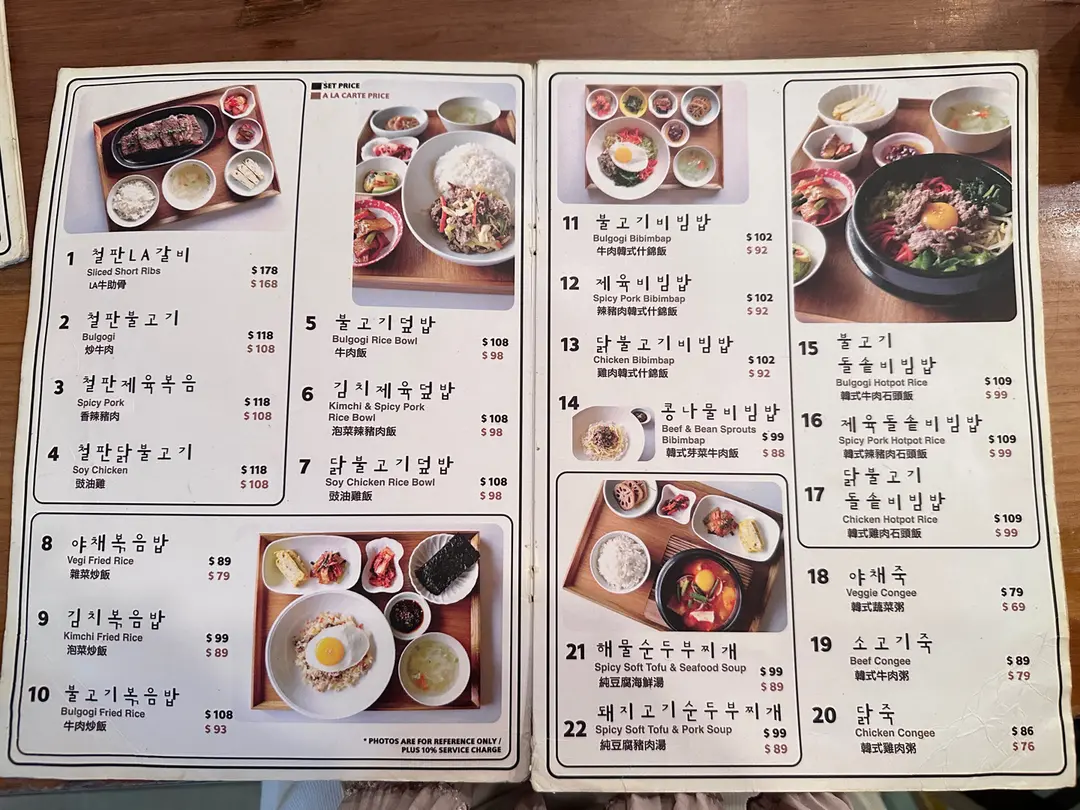 SET PRICE
A LA CARTE PRICE
1 철판LA갈비
Sliced Short Ribs $ 178
LA牛助骨 $ 168
2 철판불고기
Bulgogi $ 118
炒牛肉 $ 108
3 철판제육볶음
Spicy Pork $ 118
香辣豬肉 $ 108
4 철판닭불고기
Soy Chicken $ 118
豉油雞 $ 108
5 불고기덮밥
Bulgogi Rice Bowl $ 108
牛肉飯 $ 98
6 김치제육덮밥
Kimchi & Spicy Pork
Rice Bowl $ 108
泡菜辣豬肉飯 $ 98
7 닭불고기덮밥
Soy Chicken Rice Bowl $ 108
豉油雞飯 $ 98
8 야채볶음밥
Vegi Fried Rice $ 89
雜菜炒飯 $ 79
9 김치볶음밥
Kimchi Fried Rice $ 99
泡菜炒飯 $ 89
10 불고기볶음밥
Bulgogi Fried Rice $ 108
牛肉炒飯 $ 93
* PHOTOS ARE FOR REFERENCE ONLY /
PLUS 10% SERVICE CHARGE
11 불고기비빔밥
Bulgogi Bibimbap $ 102
牛肉韓式什錦飯 $ 92
12 제육비빔밥
Spicy Pork Bibimbap $ 102
辣豬肉韓式什錦飯 $ 92
13 닭불고기비빔밥
Chicken Bibimbap $ 102
雞肉韓式什錦飯 $ 92
14 콩나물비빔밥
Beef & Bean Sprouts
Bibimbap $ 99
韓式芽菜牛肉飯 $ 88
21 해물순두부찌개
Spicy Soft Tofu & Seafood Soup $ 99
純豆腐海鮮湯 $ 89
22 돼지고기순두부찌개
Spicy Soft Tofu & Pork Soup $ 99
純豆腐豬肉湯 $ 89
15 불고기
돌솥비빔밥
Bulgogi Hotpot Rice $ 109
韓式牛肉石頭飯 $ 99
16 제육돌솥비빔밥
Spicy Pork Hotpot Rice $ 109
韓式辣豬肉石頭飯 $ 99
닭불고기
17 돌솥비빔밥
Chicken Hotpot Rice $ 109
韓式雞肉石頭飯 $ 99
18 야채죽
Veggie Congee $ 79
韓式蔬菜粥 $ 69
19 소고기죽
Beef Congee $ 89
韓式牛肉粥 $ 79
20 닭죽
Chicken Congee $ 86
韓式雞肉粥 $ 76